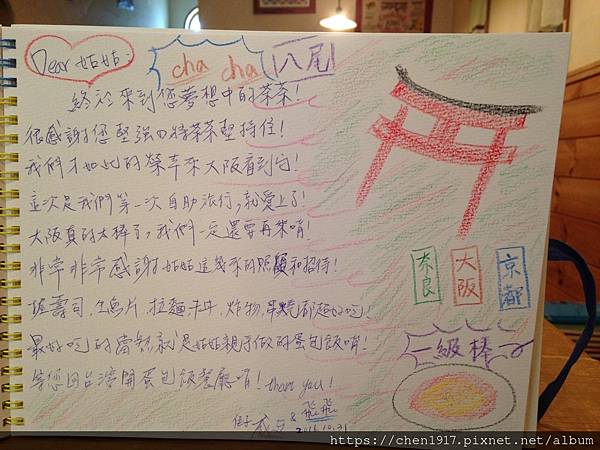 Dear 姑姑
cha cha
八尾
終於來到您夢想中的茶茶!
很感謝您堅強的將茶茶堅持住!
我們才如此的榮幸來大阪看到它!
這次是我們第一次自助旅行,就愛上了!
大阪真的太棒了,我們一定還要再來唷!
非常非常感謝姑姑這幾天的照顧和招待!
壽司,生魚片,拉麵,牛丼,炸物,串燒都超好吃!
最好吃的當然就是姑姑親手做的蛋包飯唷!
等您回台灣開蛋包飯餐廳唷! thank you!
& 飛飛
2016.10.31
奈良
大阪
京都
一級棒
https://chen1917.pixnet.net/album